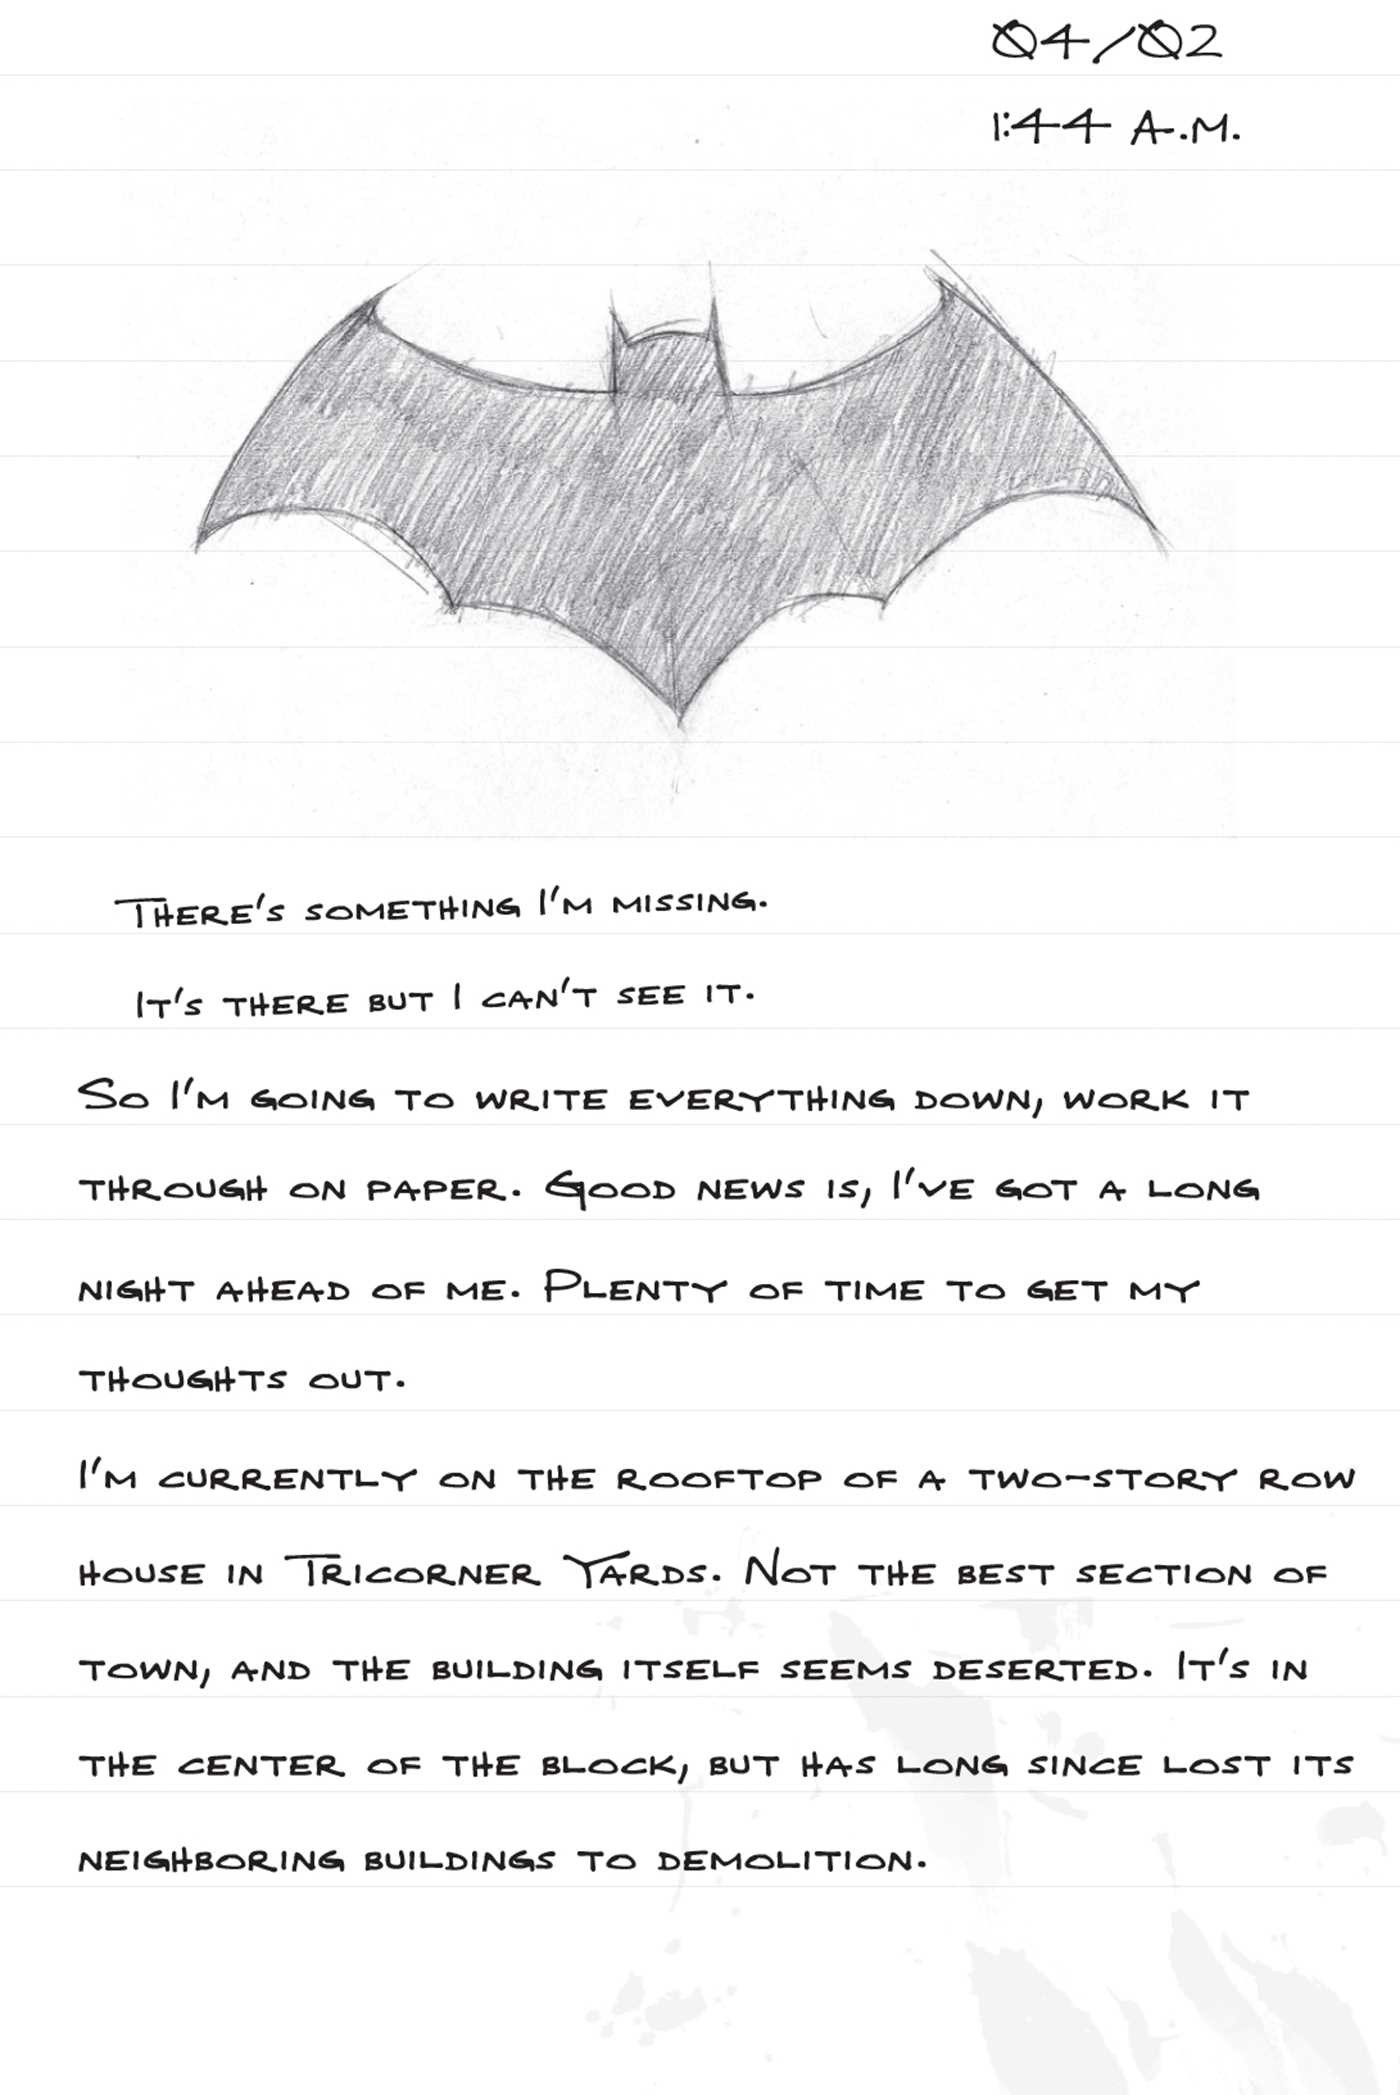 04/02
1:44 A.M.
There's something I'm missing.
It's there but I can't see it.
So I'm going to write everything down, work it
through on paper. Good news is, I've got a long
night ahead of me. Plenty of time to get my
thoughts out.
I'm currently on the rooftop of a two-story row
house in Tricorner Yards. Not the best section of
town, and the building itself seems deserted. It's in
the center of the block, but has long since lost its
neighboring buildings to demolition.